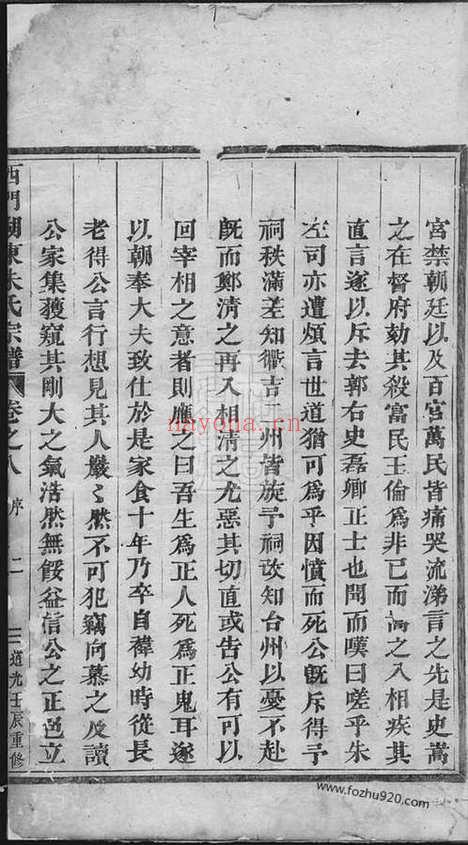 宮禁朝廷以及百官萬民皆痛哭流涕言之先是史嵩
之在督府劾其殺富民王倫爲非已而嵩之入相疾其
直言遂以斥去郭右史磊卿正士也聞而嘆曰嗟乎朱
左司亦遭煩言世道猶可爲乎因憤而死公旣斥得予
祠秩滿差知徽吉二州皆旋予祠改知台州以憂不赴
旣而鄭清之再入相清之尤惡其切直或告公有可以
回宰相之意者則應之曰吾生爲正人死爲正鬼耳遂
以朝奉大夫致仕於是家食十年乃卒自禕幼時從長
老得公言行想見其人嚴〻然不可犯竊向慕之及讀
公家集獲窺其剛大之氣浩然無餒益信公之正色立
西門湖東朱氏宗譜 卷之八 序 二 道光壬辰重修
nayona.cn
www.fozhu920.com